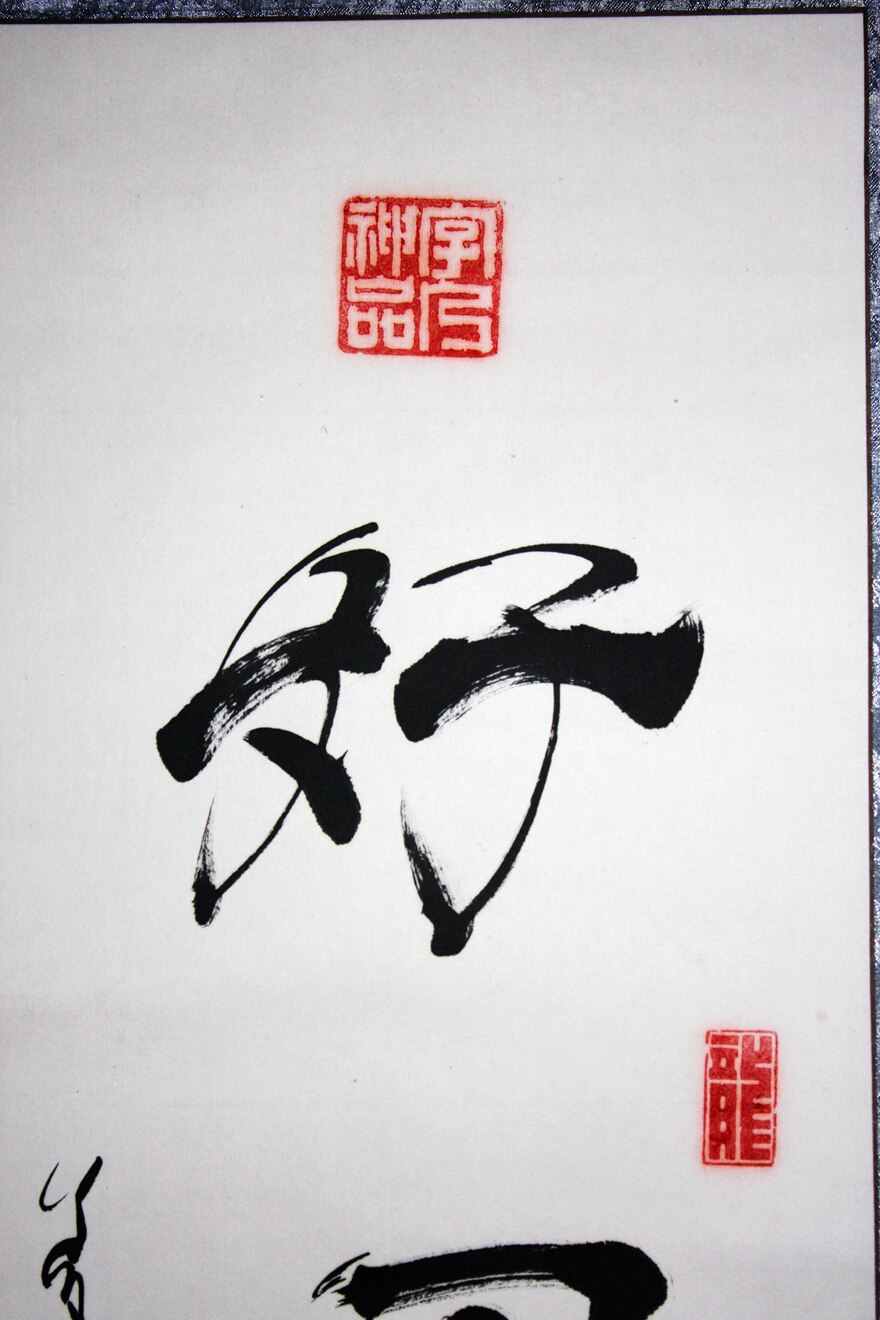 字乃神品
好
龍